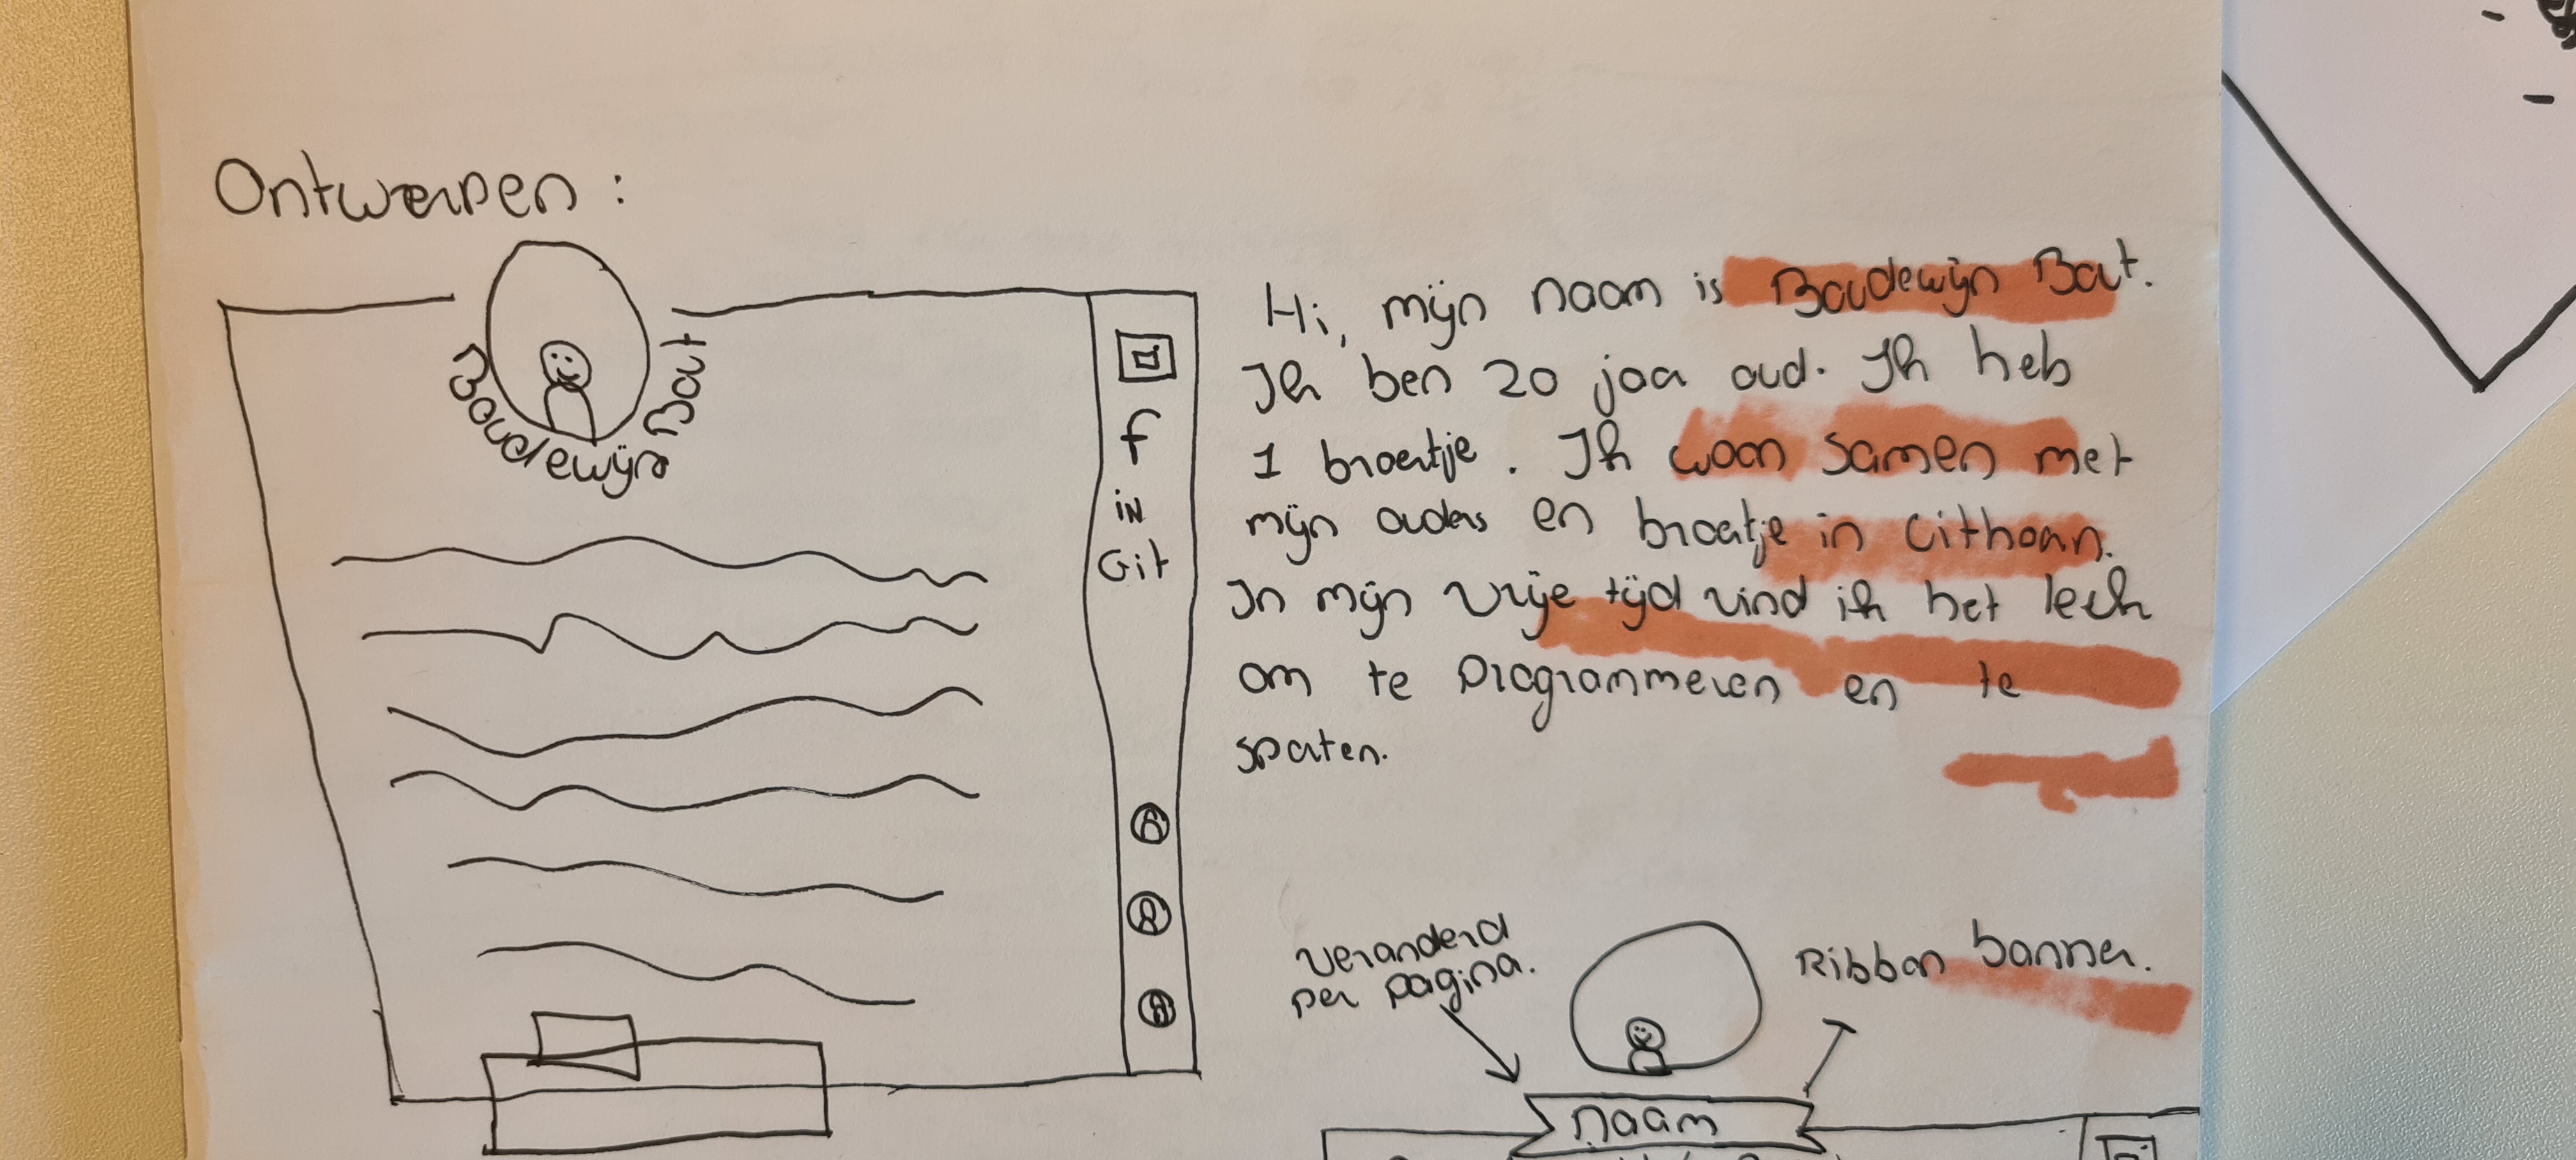 Ontwerpen:
Boudewijn Bat
f
in
Git
Hi, mijn naam is Boudewijn Bat.
Ik ben 20 jaar oud. Ik heb
1 broertje. Ik woon samen met
mijn ouders en broertje in Cithoorn.
In mijn vrije tijd vind ik het leuk
om te programmeren en te
sporten.
veranderd
per pagina.
Ribbon banner.
naam